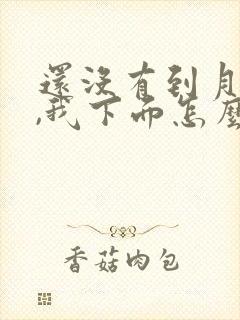 還沒有到月
,我下面怎麼
香菇肉包